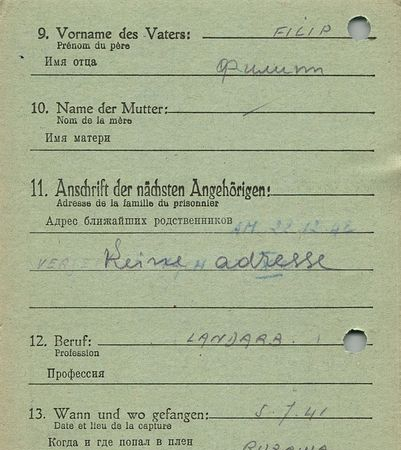 9. Vorname des Vaters: FILIP
Prénom du père
Имя отца Филипп
10. Name der Mutter:
Nom de la mère
Имя матери
11. Anschrift der nächsten Angehörigen:
Adresse de la famille du prisonnier
Адрес ближайших родственников
AM 22.12.42
Keine adresse
12. Beruf: LANDARB.
Profession
Профессия
13. Wann und wo gefangen: 5.7.41
Date et lieu de la capture
Когда и где попал в плен